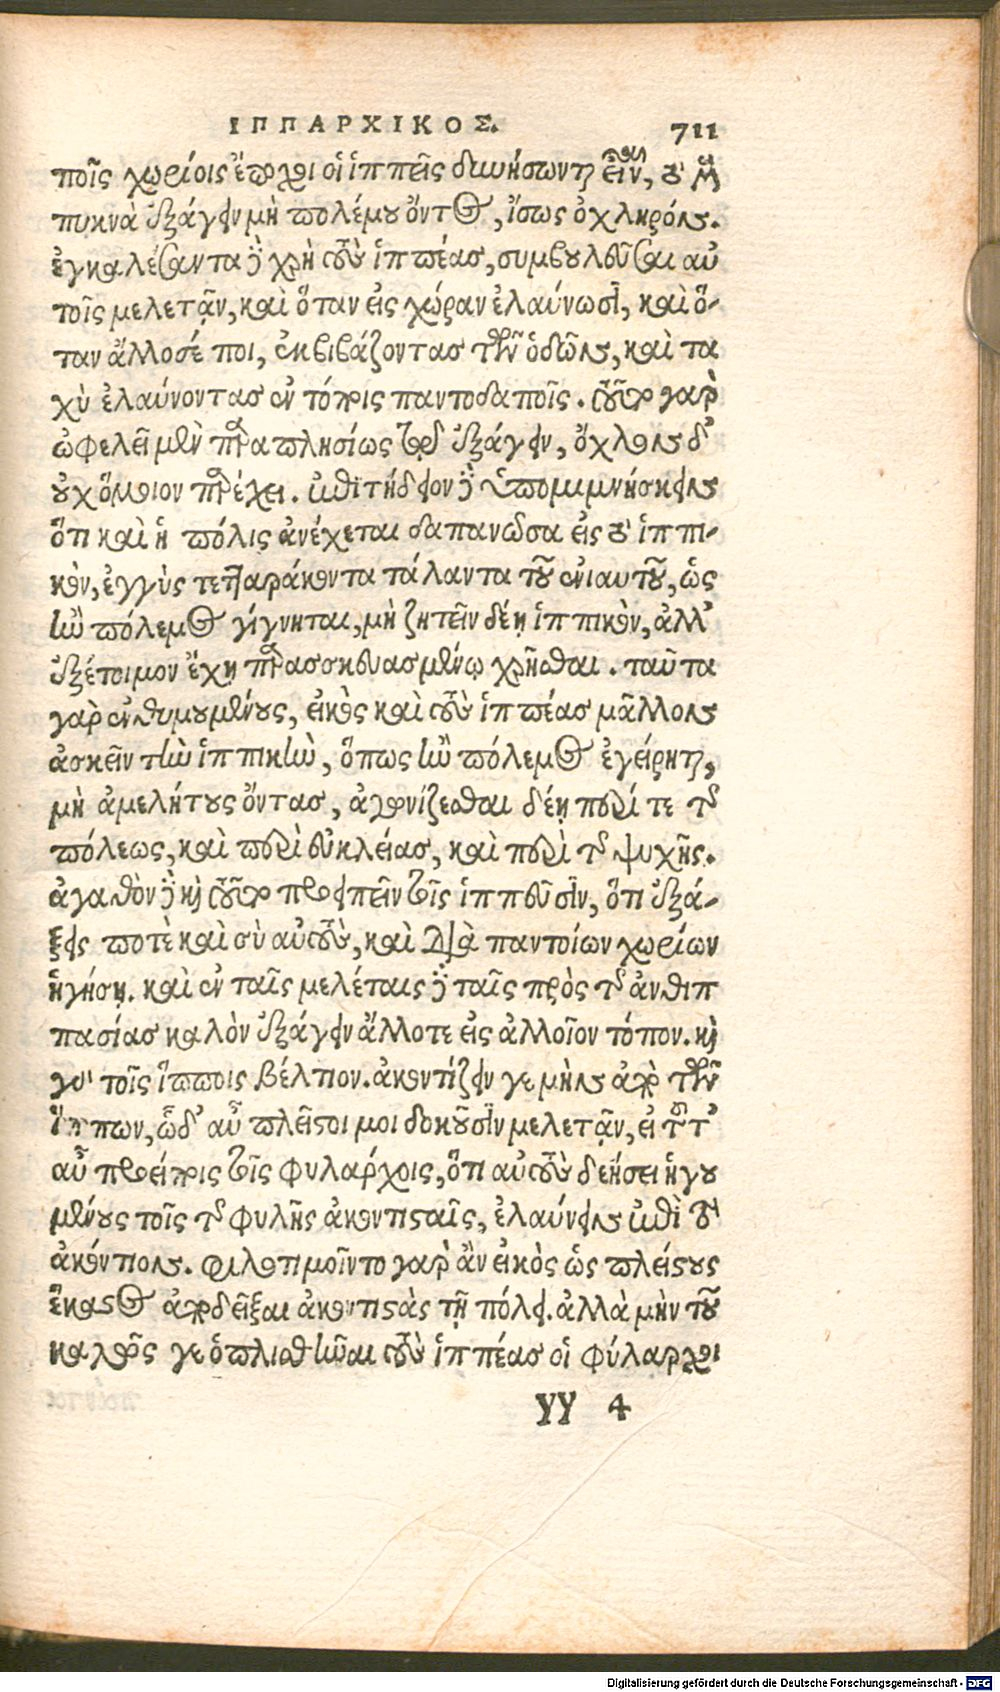 ΙΠΠΑΡΧΙΚΟΣ. 711
ποῖς χωρίοις ἔποχοι οἱ ἱππεῖς δυνήσωνται εἶναι, τὸ μὲν
πυκνὰ ἐξάγειν μὴ πολέμου ὄντος, ἴσως ὀχληρόν.
ἐγκαλέσαντα δὲ χρὴ τοὺς ἱππέας, συμβουλεῦσαι αὐ
τοῖς μελετᾷν, καὶ ὅταν εἰς χώραν ἐλαύνωσι, καὶ ὅ-
ταν ἄλλοσέ ποι, ἐκβιβάζοντας τῶν ὁδῶν, καὶ τα
χὺ ἐλαύνοντας ἐν τόποις παντοδαποῖς. τοῦτο γὰρ
ὠφελεῖ μὲν παραπλησίως τῷ ἐξάγειν, ὄχλον δ'
οὐχ ὅμοιον παρέχει. ἐπιτήδειον δὲ ὑπομιμνήσκειν
ὅτι καὶ ἡ πόλις ἀνέχεται δαπανῶσα εἰς τὸ ἱππι-
κὸν, ἐγγὺς τετταράκοντα τάλαντα τοῦ ἐνιαυτοῦ, ὡς
ἢν πόλεμος γίγνηται, μὴ ζητεῖν δέῃ ἱππικὸν, ἀλλ'
ἐξέτοιμον ἔχῃ παρασκευασμένῳ χρῆσθαι. ταῦτα
γὰρ ἐνθυμουμένους, εἰκὸς καὶ τοὺς ἱππέας μᾶλλον
ἀσκεῖν τὴν ἱππικὴν, ὅπως ἢν πόλεμος ἐγείρηται,
μὴ ἀμελήτους ὄντας, ἀγωνίζεσθαι δέῃ περί τε τῆς
πόλεως, καὶ περὶ εὐκλείας, καὶ περὶ τῆς ψυχῆς.
ἀγαθὸν δὲ καὶ τοῦτο προειπεῖν τοῖς ἱππεῦσιν, ὅτι ἐξά-
ξεις ποτὲ καὶ σὺ αὐτοὺς, καὶ διὰ παντοίων χωρίων
ἡγήσῃ. καὶ ἐν ταῖς μελέταις δὲ ταῖς πρὸς τῆς ἀνθιπ
πασίας καλὸν ἐξάγειν ἄλλοτε εἰς ἀλλοῖον τόπον. καὶ
γὰρ τοῖς ἵπποις βέλτιον. ἀκοντίζειν γε μὴν ἀπὸ τῶν
ἵππων, ὧδ' αὖ πλεῖστοι μοι δοκοῦσιν μελετᾷν, εἰ τοῦτ'
αὖ προείποις τοῖς φυλάρχοις, ὅτι αὐτοὺς δεήσει ἡγου
μένους τοῖς τῆς φυλῆς ἀκοντισταῖς, ἐλαύνειν ἐπὶ τὸ
ἀκόντιον. φιλοτιμοῖντο γὰρ ἂν εἰκὸς ὡς πλείστους
ἕκαστος ἀποδεῖξαι ἀκοντιστὰς τῇ πόλει. ἀλλὰ μὴν τοῦ
καλῶς γε ὁπλισθῆναι τοὺς ἱππέας οἱ φύλαρχοι
yy 4
Digitalisierung gefördert durch die Deutsche Forschungsgemeinschaft - DFG